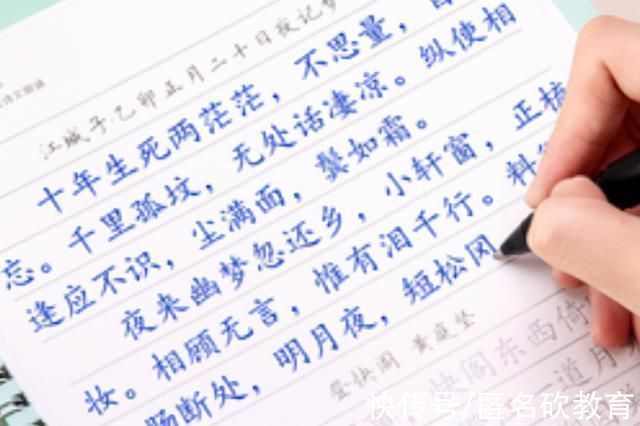 江城子·乙卯正月二十日夜记梦
十年生死两茫茫，不思量，自
忘。千里孤坟，无处话凄凉。纵使相
逢应不识，尘满面，鬓如霜。
夜来幽梦忽还乡，小轩窗，正梳
妆。相顾无言，惟有泪千行。料
肠断处，明月夜，短松冈
登快阁 黄庭坚
快阁东西倚
道月
快传号/匿名砍教育